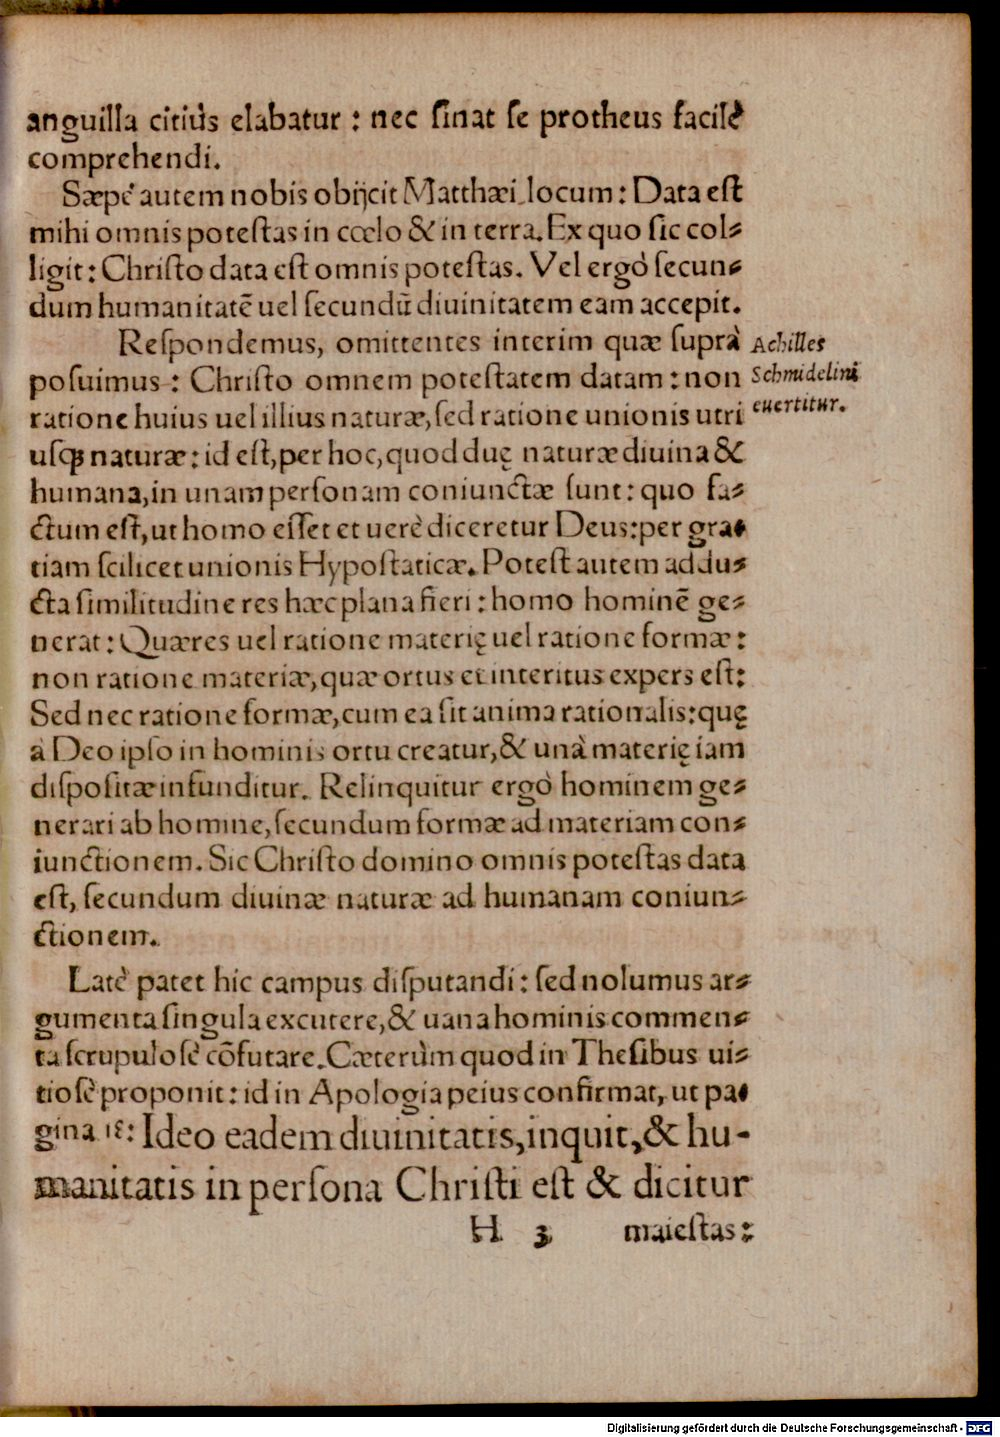 anguilla citiùs elabatur : nec ſinat ſe protheus facilè
comprehendi.
Sæpè autem nobis obijcit Matthæi locum : Data eſt
mihi omnis poteſtas in cœlo & in terra. Ex quo ſic col⸗
ligit : Chriſto data eſt omnis poteſtas. Vel ergò ſecun⸗
dum humanitatē uel ſecundū diuinitatem eam accepit.
Reſpondemus, omittentes interim quæ ſuprà
poſuimus : Chriſto omnem poteſtatem datam : non
ratione huius uel illius naturæ, ſed ratione unionis utri
uſqꝫ naturæ : id eſt, per hoc, quod duę naturæ diuina &
humana, in unam perſonam coniunctæ ſunt : quo fa⸗
ctum eſt, ut homo eſſet et uerè diceretur Deus : per gra⸗
tiam ſcilicet unionis Hypoſtaticæ. Poteſt autem addu⸗
cta ſimilitudine res hæc plana fieri : homo hominē ge⸗
nerat : Quæres uel ratione materię uel ratione formæ :
non ratione materiæ, quæ ortus et interitus expers eſt :
Sed nec ratione formæ, cum ea ſit anima rationalis : quę
à Deo ipſo in hominis ortu creatur, & unà materię iam
diſpoſitæ infunditur. Relinquitur ergò hominem ge⸗
nerari ab homine, ſecundum formæ ad materiam con⸗
iunctionem. Sic Chriſto domino omnis poteſtas data
eſt, ſecundum diuinæ naturæ ad humanam coniun⸗
ctionem.
Achilles
Schmidelini
euertitur.
Latè patet hic campus diſputandi : ſed nolumus ar⸗
gumenta ſingula excutere, & uana hominis commen⸗
ta ſcrupuloſè cōfutare. Cæterùm quod in Theſibus ui⸗
tioſè proponit : id in Apologia peius confirmat, ut pa⸗
gina 18 : Ideo eadem diuinitatis, inquit, & hu-
manitatis in perſona Chriſti eſt & dicitur
H 3 maieſtas :
Digitalisierung gefördert durch die Deutsche Forschungsgemeinschaft - DFG